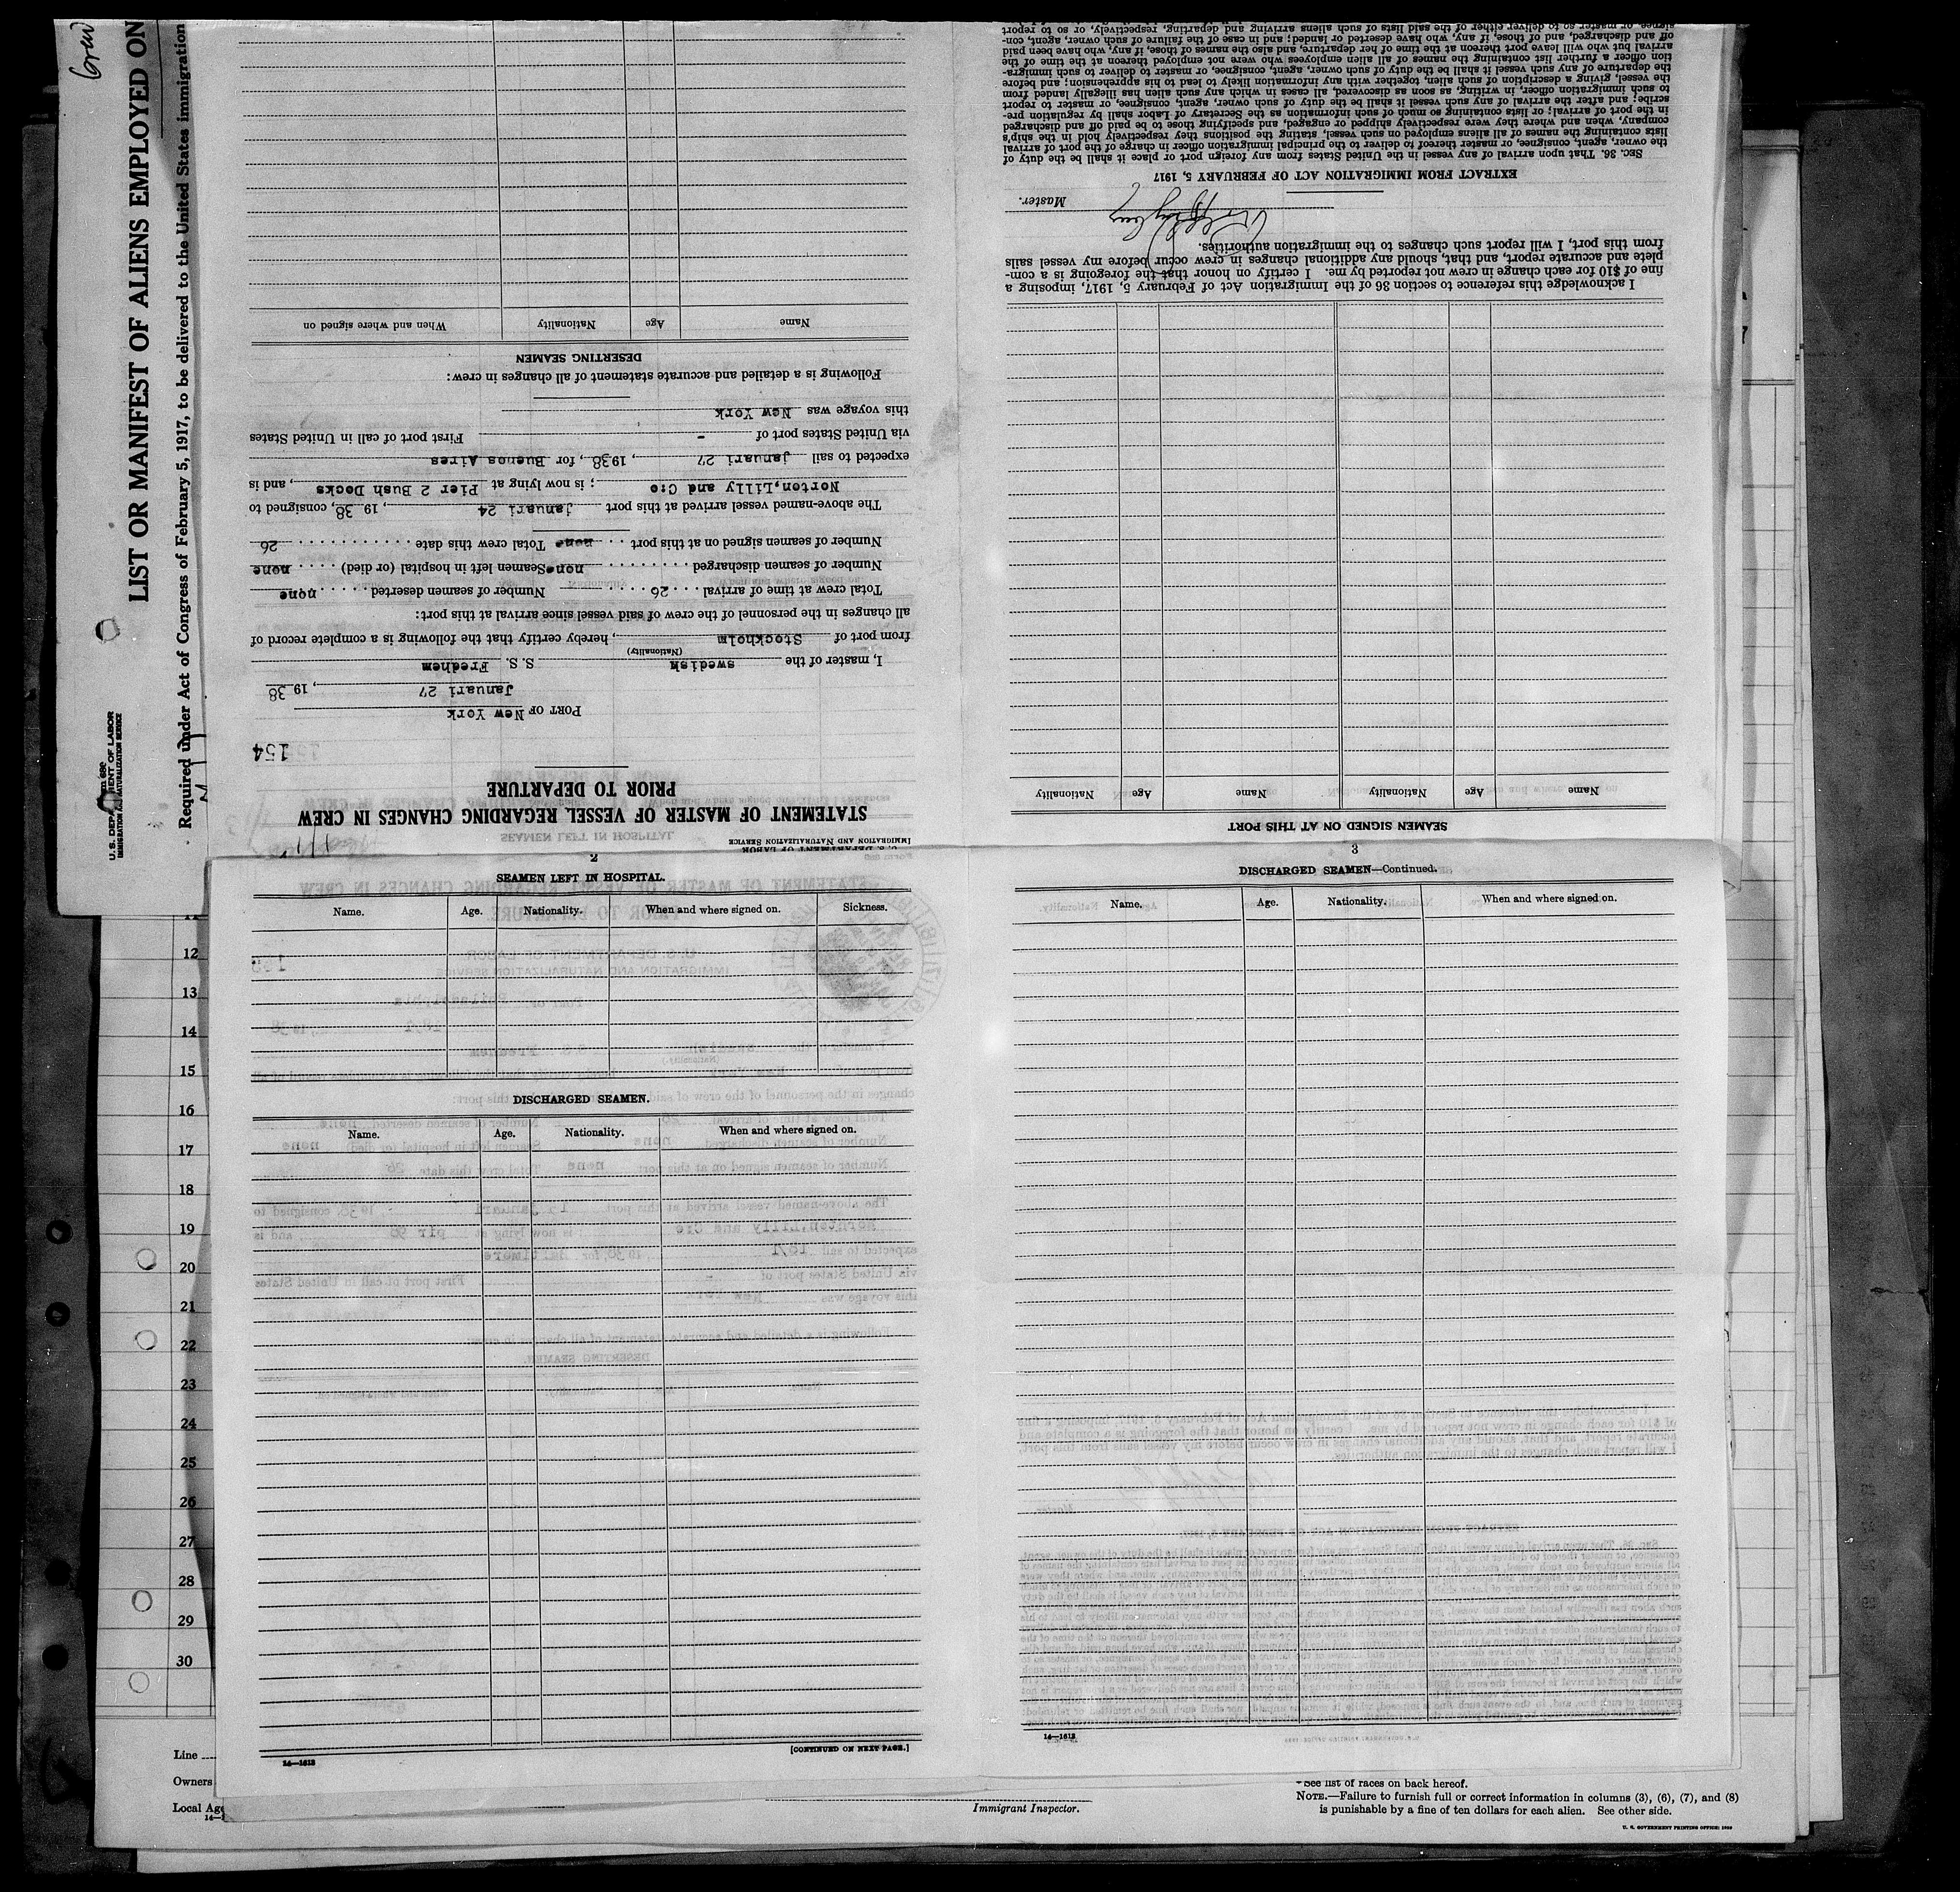 Crew
LIST OR MANIFEST OF ALIENS EMPLOYED ON
Required under Act of Congress of February 5, 1917, to be delivered to the United States immigration
U.S. DEPARTMENT OF LABOR
IMMIGRATION AND NATURALIZATION SERVICE
U. S. DEPARTMENT OF LABOR
IMMIGRATION AND NATURALIZATION SERVICE
STATEMENT OF MASTER OF VESSEL REGARDING CHANGES IN CREW
PRIOR TO DEPARTURE
154
PORT OF New York
Januari 27, 1938
I, master of the swedish S. S. Fredhem
(Nationality)
from port of Stockholm, hereby certify that the following is a complete record of
all changes in the personnel of the crew of said vessel since arrival at this port:
Total crew at time of arrival 26 Number of seamen deserted none
Number of seamen discharged none Seamen left in hospital (or died) none
Number of seamen signed on at this port none Total crew this date 26
The above-named vessel arrived at this port Januari 24, 1938, consigned to
Norton,Lilly and C:o; is now lying at Pier 2 Bush Docks, and is
expected to sail Januari 27, 1938, for Buenos Aires
via United States port of - First port of call in United States
this voyage was New York
Following is a detailed and accurate statement of all changes in crew:
DESERTING SEAMEN
Name Age Nationality When and where signed on
SEAMEN SIGNED ON AT THIS PORT
Name Age Nationality Name Age Nationality
I acknowledge this reference to section 36 of the Immigration Act of February 5, 1917, imposing a
fine of $10 for each change in crew not reported by me. I certify on honor that the foregoing is a com-
plete and accurate report, and that, should any additional changes in crew occur before my vessel sails
from this port, I will report such changes to the immigration authorities.
Master.
EXTRACT FROM IMMIGRATION ACT OF FEBRUARY 5, 1917
SEC. 36. That upon arrival of any vessel in the United States from any foreign port or place it shall be the duty of
the owner, agent, consignee, or master thereof to deliver to the principal immigration officer in charge of the port of arrival
lists containing the names of all aliens employed on such vessel, stating the positions they respectively hold in the ship's
company, when and where they were respectively shipped or engaged, and specifying those to be paid off and discharged
in the port of arrival; or lists containing so much of such information as the Secretary of Labor shall by regulation pre-
scribe; and after the arrival of any such vessel it shall be the duty of such owner, agent, consignee, or master to report
to such immigration officer, in writing, as soon as discovered, all cases in which any such alien has illegally landed from
the vessel, giving a description of such alien, together with any information likely to lead to his apprehension; and before
the departure of any such vessel it shall be the duty of such owner, agent, consignee, or master to deliver to such immigra-
tion officer a further list containing the names of all alien employees who were not employed thereon at the time of the
arrival but who will leave port thereon at the time of her departure, and also the names of those, if any, who have been paid
off and discharged, and of those, if any, who have deserted or landed; and in case of the failure of such owner, agent, con-
signee, or master so to deliver either of the said lists of such aliens arriving and departing, respectively, or so to report
2
SEAMEN LEFT IN HOSPITAL.
Name. Age. Nationality. When and where signed on. Sickness.
DISCHARGED SEAMEN.
Name. Age. Nationality. When and where signed on.
14—1613
[CONTINUED ON NEXT PAGE.]
3
DISCHARGED SEAMEN—Continued.
Name. Age. Nationality. When and where signed on.
14—1613
11
12
13
14
15
16
17
18
19
20
21
22
23
24
25
26
27
28
29
30
Line
Owners
Local Age
Immigrant Inspector.
* See list of races on back hereof.
NOTE.—Failure to furnish full or correct information in columns (3), (6), (7), and (8)
is punishable by a fine of ten dollars for each alien. See other side.
U. S. GOVERNMENT PRINTING OFFICE: